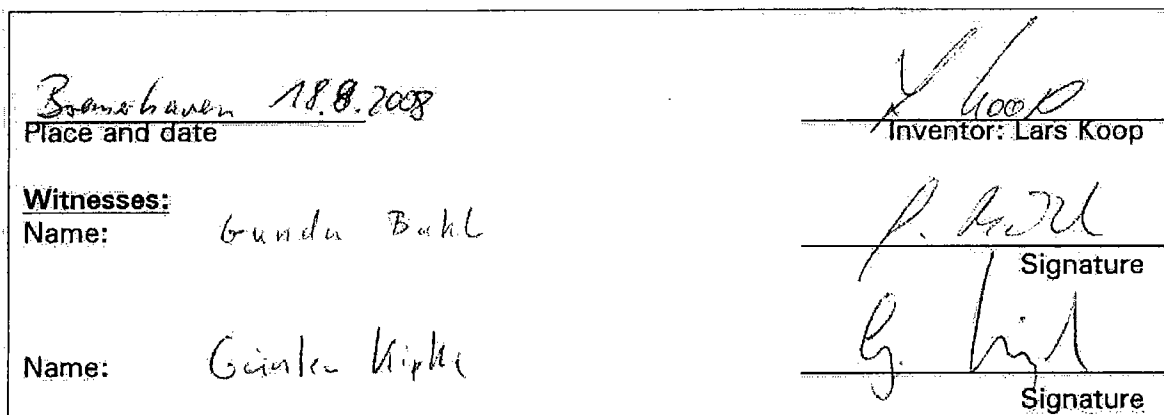 Bremerhaven 18.8.2008
Place and date
L Koop
Inventor: Lars Koop
Witnesses:
Name: Gunda Bahl
Signature
Name: Günter Kipke
Signature